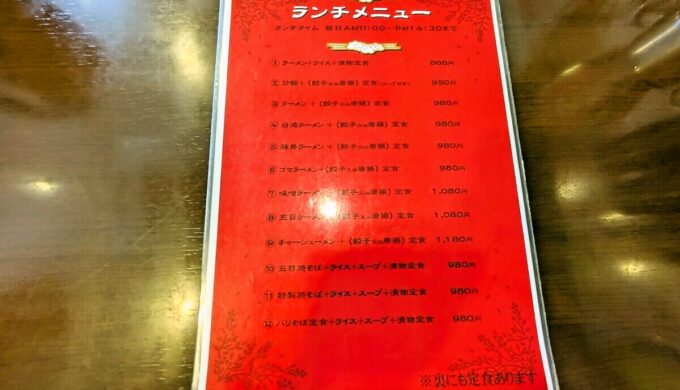 ランチメニュー
ランチタイム 毎日AM11:00〜PM14:30まで
① ラーメン+ライス+漬物定食 800円
② 炒飯+(餃子又は唐揚)定食 950円
③ ラーメン+(餃子又は唐揚)定食 980円
④ 台湾ラーメン+(餃子又は唐揚)定食 980円
⑤ 豚骨ラーメン+(餃子又は唐揚)定食 980円
⑥ ゴマラーメン+(餃子又は唐揚)定食 980円
⑦ 味噌ラーメン+(餃子又は唐揚)定食 1,080円
⑧ 五目ラーメン+(餃子又は唐揚)定食 1,080円
⑨ チャーシューメン+(餃子又は唐揚)定食 1,180円
⑩ 五目焼そば+ライス+スープ+漬物定食 980円
⑪ 特製焼そば+ライス+スープ+漬物定食 980円
⑫ バリそば定食+ライス+スープ+漬物定食 980円
※裏にも定食あります